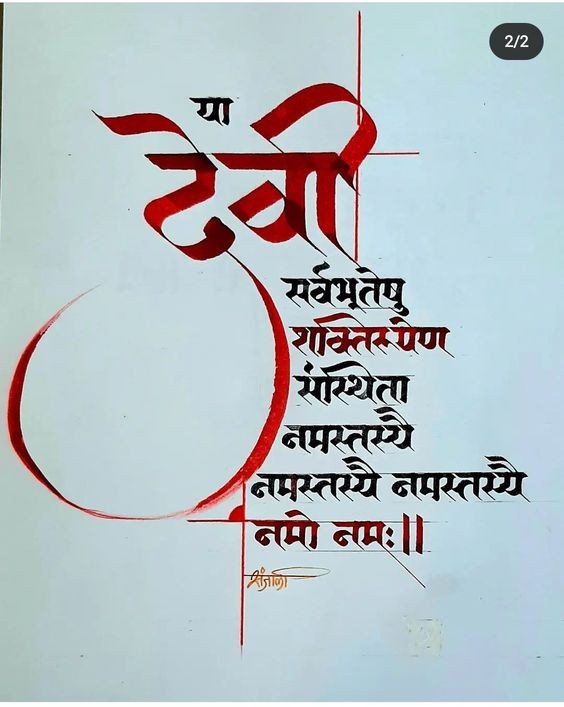 2/2
या
देवी
सर्वभूतेषु
शक्तिरूपेण
संस्थिता
नमस्तस्यै
नमस्तस्यै नमस्तस्यै
नमो नमः||